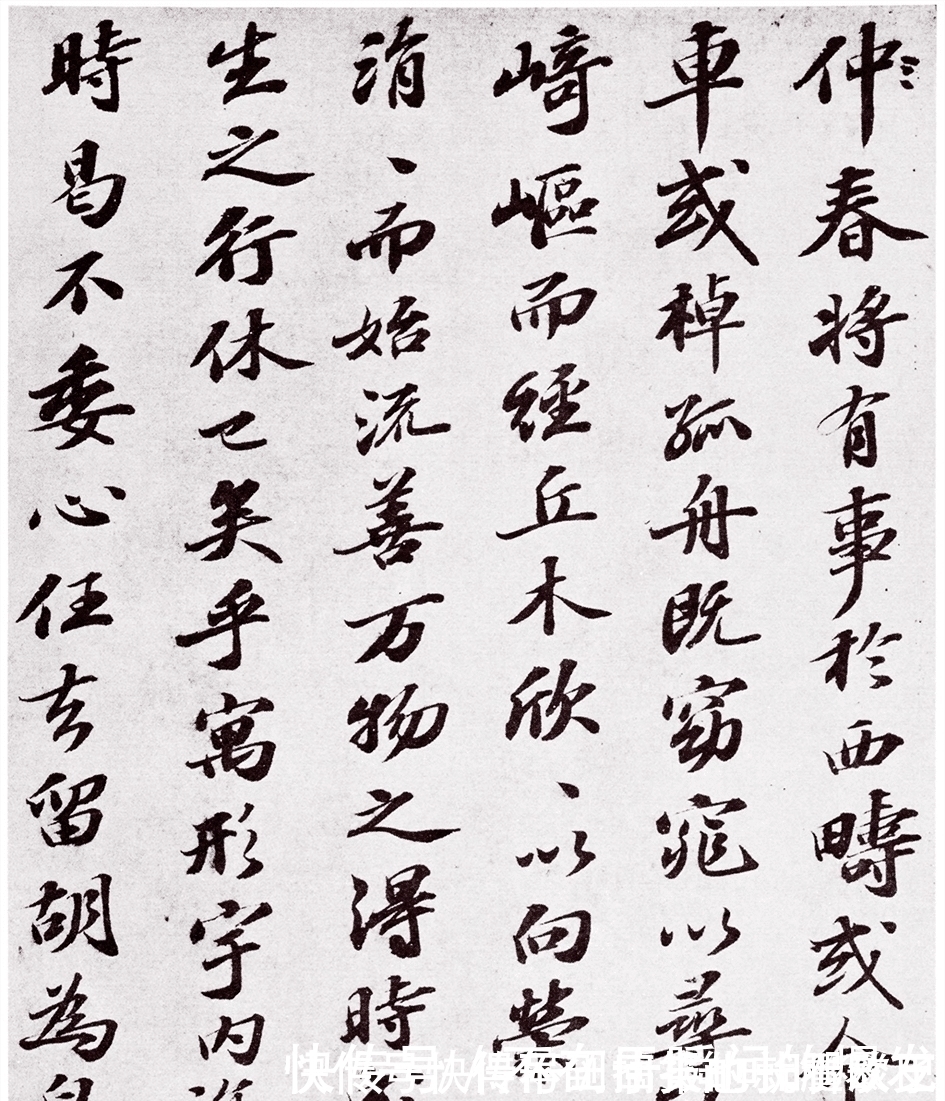 仲春將有事於西疇或
車或棹孤舟既窈窕以尋
崎嶇而經丘木欣、以向榮
涓、而始流善万物之得時
生之行休已矣乎寓形宇内
時曷不委心任去留胡為